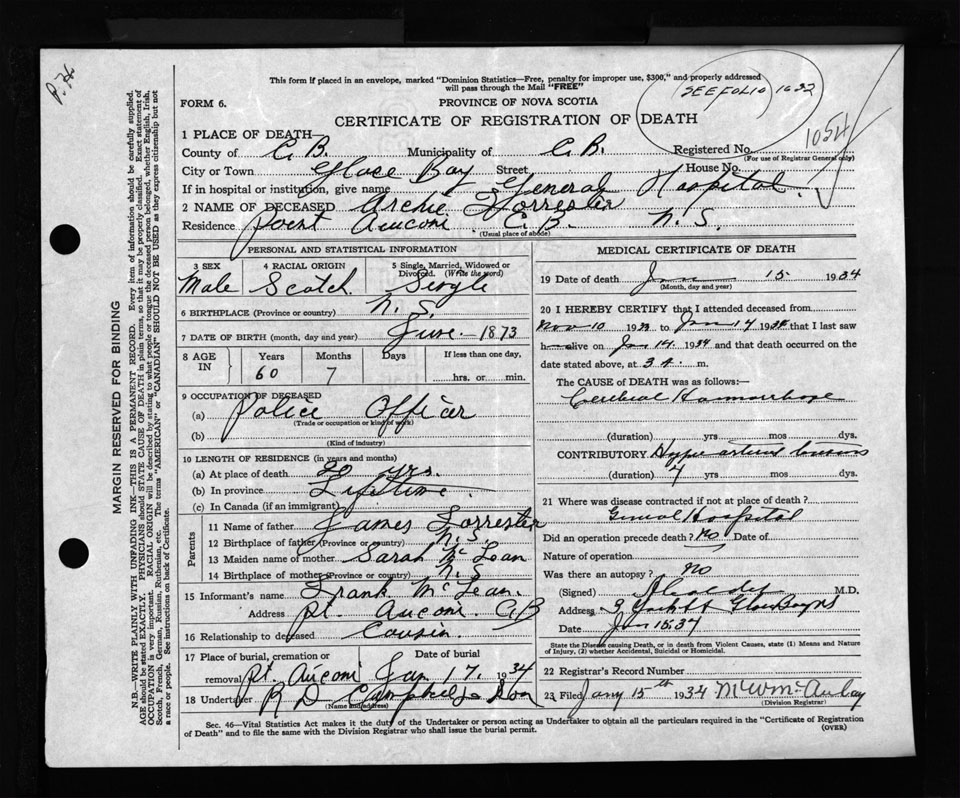 P. 76
This form if placed in an envelope, marked "Dominion Statistics—Free, penalty for improper use, $300," and properly addressed
will pass through the Mail "FREE"
(SEE FOLIO) 1632
FORM 6.
PROVINCE OF NOVA SCOTIA
CERTIFICATE OF REGISTRATION OF DEATH
1054
1 PLACE OF DEATH—
County of C.B. Municipality of C.B. Registered No.
(For use of Registrar General only)
City or Town Glace Bay Street House No.
If in hospital or institution, give name General Hospital.
2 NAME OF DECEASED Archie Forrester
Residence Point Auconi C.B. N.S.
(Usual place of abode)
PERSONAL AND STATISTICAL INFORMATION
3 SEX 4 RACIAL ORIGIN 5 Single, Married, Widowed or Divorced. (Write the word)
Male Scotch Single
6 BIRTHPLACE (Province or country) N.S.
7 DATE OF BIRTH (month, day and year) June - 1873
8 AGE IN Years Months Days If less than one day,
60 7 hrs. or min.
9 OCCUPATION OF DECEASED
(a) Police Officer
(Trade or occupation or kind of work)
(b)
(Kind of industry)
10 LENGTH OF RESIDENCE (in years and months)
(a) At place of death 20 yrs.
(b) In province Lifetime.
(c) In Canada (if an immigrant)
Parents
11 Name of father James Forrester
12 Birthplace of father (Province or country) N.S.
13 Maiden name of mother Sarah McLean
14 Birthplace of mother (Province or country) N.S
15 Informant's name Frank McLean.
Address Pt. Auconi C.B
16 Relationship to deceased Cousin.
17 Place of burial, cremation or removal Date of burial
Pt. Auconi Jan 17. 1934
18 Undertaker R D Campbell & Son
(Name and address)
MEDICAL CERTIFICATE OF DEATH
19 Date of death Jan 15 1934
(Month, day and year)
20 I HEREBY CERTIFY that I attended deceased from
Nov 10 1933 to Jan 14 1934 that I last saw
h alive on Jan 14. 1934 and that death occurred on
date stated above, at 3 A. m.
The CAUSE OF DEATH was as follows:—
Cerebral Haemorrhage
(duration) yrs mos dys.
CONTRIBUTORY
(duration) 4 yrs mos dys.
21 Where was disease contracted if not at place of death?
General Hospital
Did an operation precede death? No Date of
Nature of operation
Was there an autopsy? No
(Signed) M.D.
Address Glace Bay NS
Date Jan 15.34
State the Disease causing Death, or in death from Violent Causes, state (1) Means and Nature
of Injury, (2) whether Accidental, Suicidal or Homicidal.
22 Registrar's Record Number
23 Filed Jany 15th 1934
(Division Registrar)
Sec. 46—Vital Statistics Act makes it the duty of the Undertaker or person acting as Undertaker to obtain all the particulars required in the "Certificate of Registration
of Death" and to file the same with the Division Registrar who shall issue the burial permit.
(OVER)
MARGIN RESERVED FOR BINDING
N.B.—WRITE PLAINLY WITH UNFADING INK—THIS IS A PERMANENT RECORD. Every item of information should be carefully supplied.
AGE should be stated EXACTLY. PHYSICIANS should STATE CAUSE OF DEATH in plain terms, so that it may be properly classified. Exact statement of
OCCUPATION is very important. RACIAL ORIGIN will be described by stating to what people or tongue the deceased person belonged, whether English, Irish,
Scotch, French, German, Russian, Ruthenian, etc. The terms "AMERICAN" or "CANADIAN" SHOULD NOT BE USED as they express citizenship but not
a race or people. See instructions on back of Certificate.